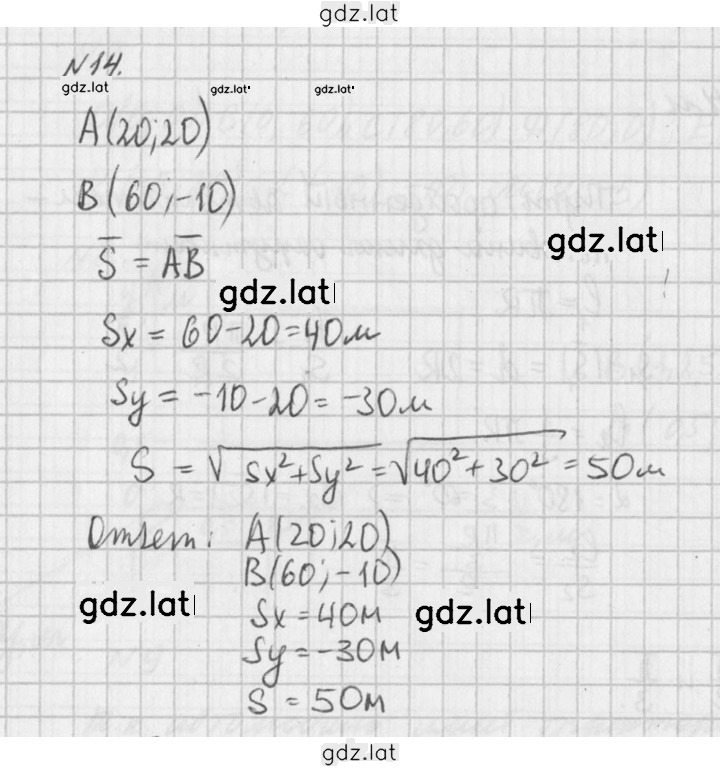 gdz.lat
N14.
gdz.lat gdz.lat gdz.lat
A(20;20)
B(60;-10)
S̅ = A̅B̅
gdz.lat
gdz.lat
Sx = 60-20=40м
Sy = -10-20= -30м
S = √Sx²+Sy² = √40²+30² = 50м
Ответ: A(20;20)
B(60;-10)
gdz.lat
Sx = 40м
gdz.lat
Sy = -30м
S = 50м
gdz.lat